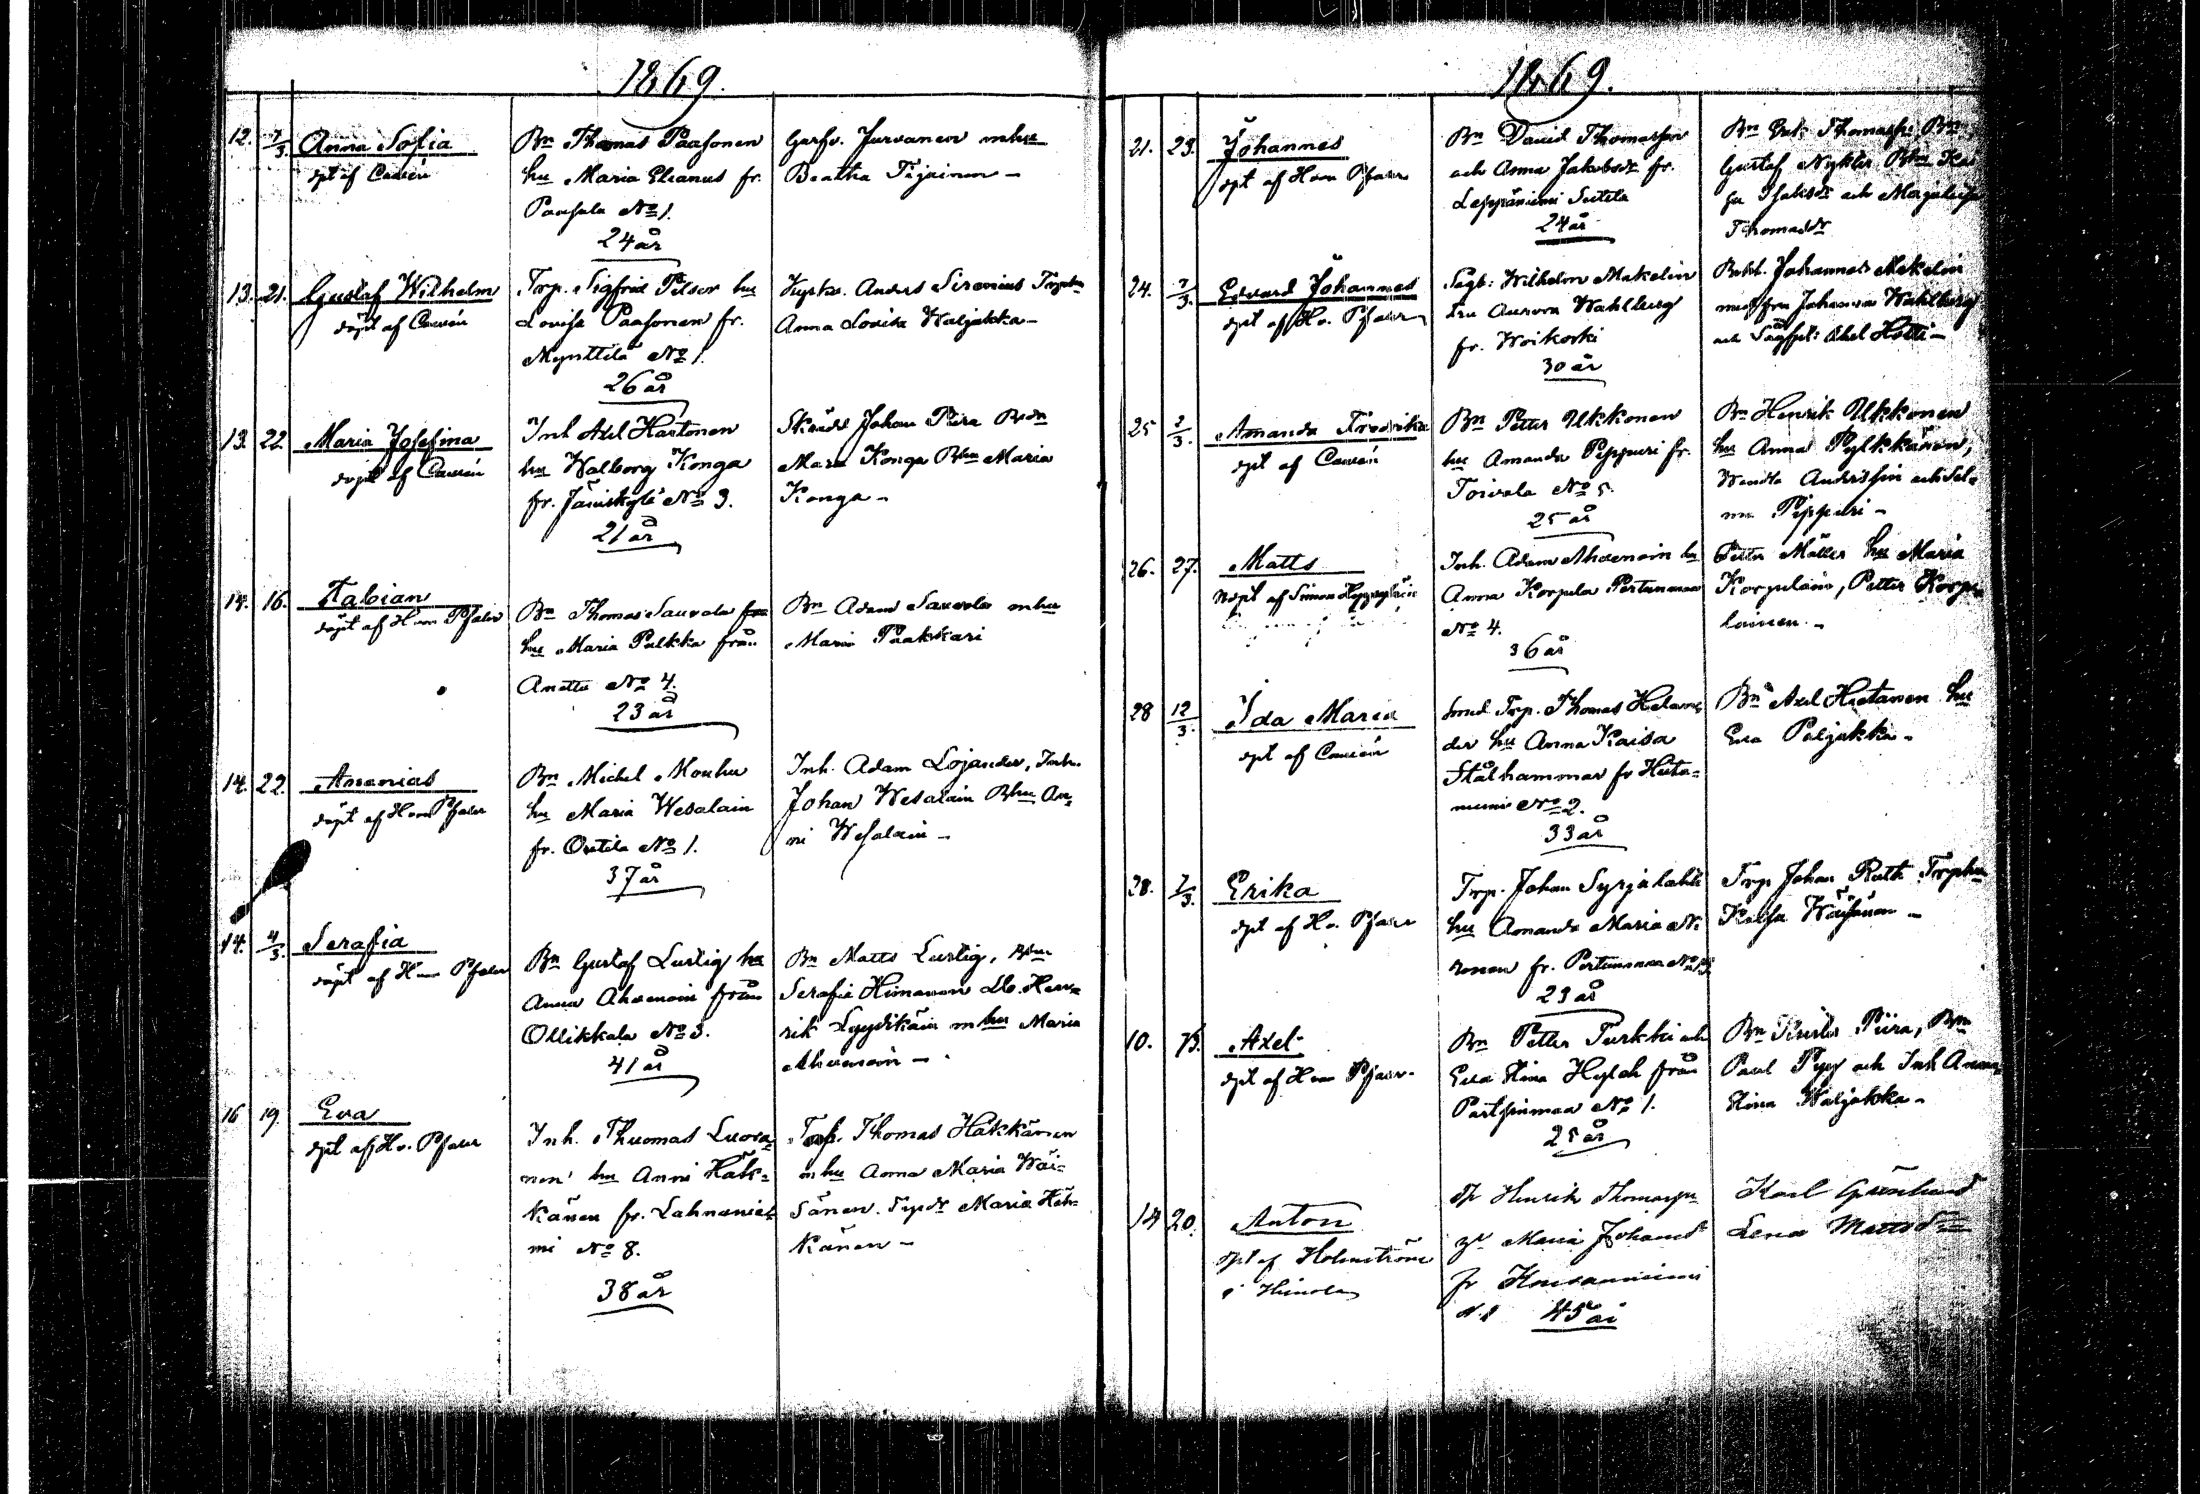 1869.
12. 7/3. Anna Sofia
dpt af Cawén
Bn Thomas Paasonen
hu Maria Elianus fr.
Paasola No 1.
24 år
Garfv. Jurvanen mhu
Beatha Tijainen -
13. 21. Gustaf Wilhelm
döpt af Cawén
Trp. Sigfrid Pilser hu
Lovisa Paasonen fr.
Mynttilä No 1.
26 år
Kyrkv. Anders Sirenius Trphu
Anna Lovisa Waljakka -
13. 22 Maria Josefina
döpt af Cawén
Inh Axel Hartonen
hu Walborg Konga
fr. Jäniskylä No 3.
21 år
Skrädd Johan Piira Bndn
Maria Konga Bhu Maria
Konga -
14. 16. Fabian
döpt af Hrr Pfaler
Bn Thomas Sauvala
hu Maria Pulkka från
Anettu No 4.
23 år
Bn Adam Sauvola mhu
Maria Paakkari
14. 22. Ananias
döpt af Hrr Pfaler
Bn Michel Mouhu
hu Maria Wesalain
fr. Ortila No 1.
37 år
Inh. Adam Lojander, Inh.
Johan Wesalain Bhu An=
ni Wesalain -
14. 4/3. Serafia
döpt af Hrr Pfaler
Bn Gustaf Lustig hu
Anna Ahvenain från
Ollikkala No 3.
41 år
Bn Matts Lustig, Bhu
Serafia Himanen Db. Hen=
rik Lyydikäin mhu Maria
Ahvenain -
16 19. Eva
dpt af Hr. Pfaler
Inh. Thuomas Luova=
nen hu Anni Häk=
känen fr. Lahnanie=
mi No 8.
38 år
Torp. Thomas Häkkänen
mhu Anna Maria Wäi=
sänen. Trpdr Maria Häk=
känen -
1869.
21. 23. Johannes
dpt af Hrr Pfaler
Bn David Thomasson
och Anna Jakobsdr fr.
Leppäniemi Suttela
24 år
Bn Erik Thomass: Bn
Gustaf Nykler Bhu Kai
sa Isaksdr och Majalisa
Thomasdr
24. 7/3. Edvard Johannes
dpt af Hr. Pfaler
Sagb: Wilhelm Makelin
Fru Aurora Wahlberg
fr. Woikoski
30 år
Bokh. Johannes Makelin
med fru Johanna Wahlberg
och Sågfpt: Axel Hötti -
25 2/3. Amanda Fredrika
dpt af Cawén
Bn Petter Ukkonen
hu Amanda Pippuri fr.
Toivola No 5.
25 år
Bn Henrik Ukkonen
hu Anna Pylkkänen,
Wendla Andersin och Sel=
ma Pippuri -
26. 27. Matts
Nöpt af Simon
Inh. Adam Ahvenain hu
Anna Korpela Pertunmaa
No 4.
36 år
Petter Möller hu Maria
Korpelain, Petter Korpe
lainen. -
28 12/3. Ida Maria
dpt af Cawén
Smed. Trp. Thomas Helan=
der hu Anna Kaisa
Stålhammar fr Hieta=
niemi No 2.
33 år
Bn Axel Hietanen hu
Eva Paljakka -
28. 7/3. Erika
dpt af Hr. Pfaler
Trp. Johan Syrjalahti
hu Amanda Maria Ni
ronen fr. Pertunmaa No
23 år
Trp Johan Rath Trphu
Kaisa Wäisänen -
10. 7/3. Axel
dpt af Hrr Pfaler
Bn Petter Turkki och
Eva Stina Hylah från
Partsinmaa No 1.
25 år
Bn Piira, Bn
Paul Pyy och Inh Anna
Stina Waljakka -
14 20. Anton
dpt af Holmström
i Heinola
Henrik Thomasson
Maria Johansd
fr Kousanniemi
N 1 45 år
Karl Grönlund
Lena Mattsdr